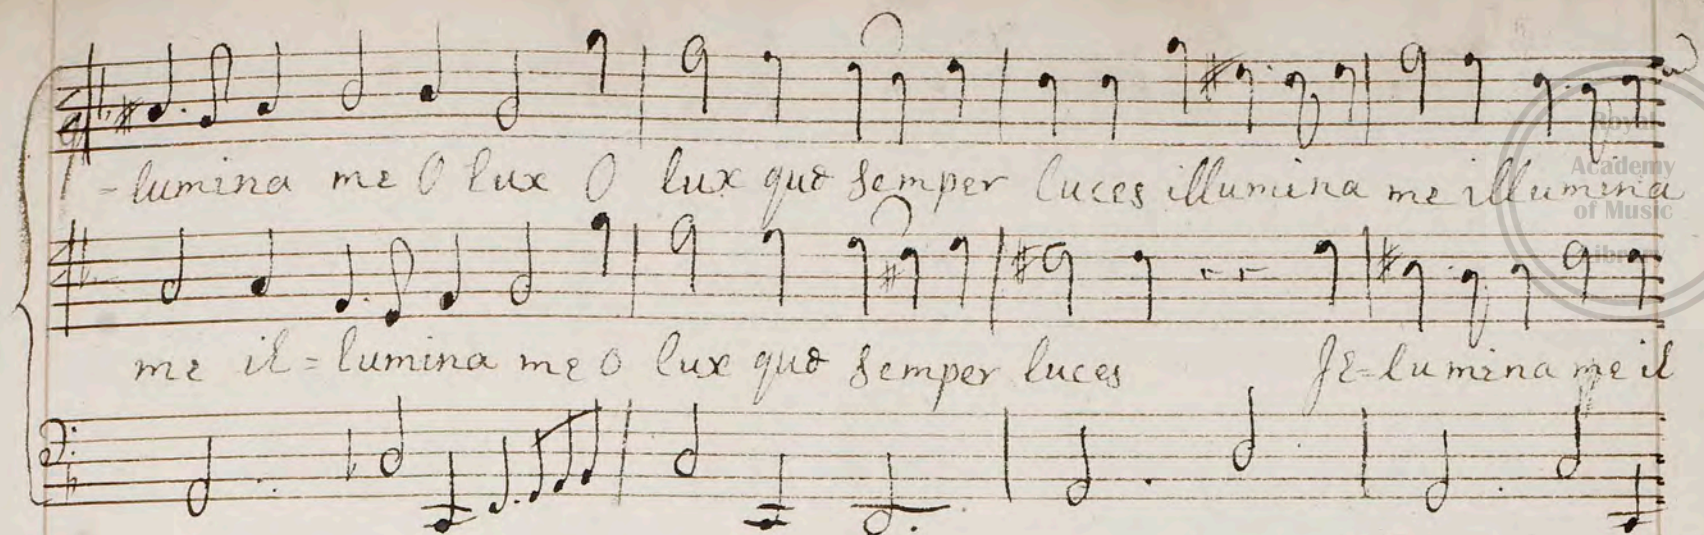 -lumina me O lux O lux quæ semper luces illumina me illumina
me il=lumina me o lux quæ semper luces Il-lumina me il
Royal
Academy
of Music
Library